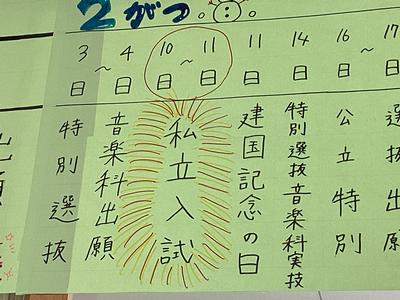 2がつ
3日～4日
10日～11日
11日
14日
16日～17
特別選抜
音楽科出願
私立入試
建国記念の日
特別選抜音楽科実技
公立特別
選抜出願